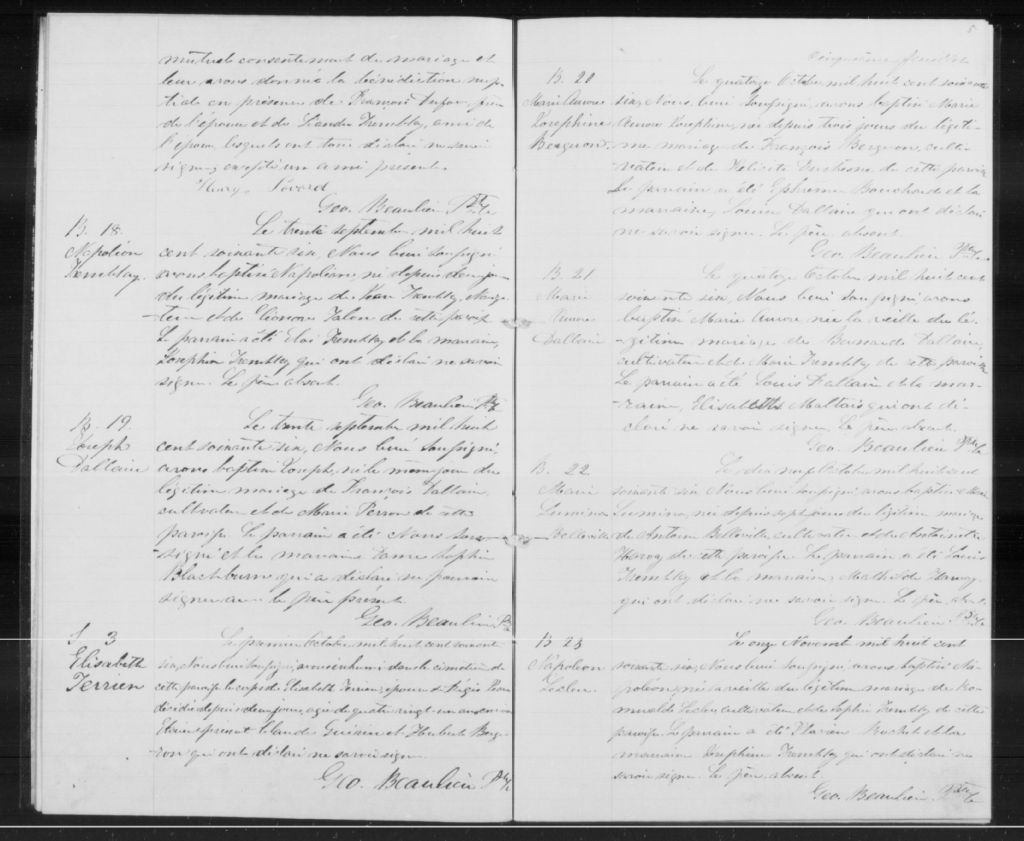 mutuel consentement de mariage et
leur avons donné la bénédiction nup-
tiale en présence de François
de l'époux et de Léandre Tremblay, ami de
l'époux, lesquels ont tous déclaré ne savoir
signer excepté un ami présent.
Henry Sovard
Geo. Beaulieu Ptre
B. 18.
Napoléon
Tremblay.
Le trente septembre mil huit
cent soixante six, Nous curé soussigné
avons baptisé Napoléon, né depuis deux jours
du légitime mariage de Tremblay,
et de Talon de cette paroisse
Le parrain a été Eloi Tremblay et la marraine,
Josephine Tremblay qui ont déclaré ne savoir
signer. Le père absent.
Geo. Beaulieu Ptre
B. 19.
Joseph
Dallaire
Le trente septembre mil huit
cent soixante six, Nous curé soussigné,
avons baptisé Joseph, né le même jour du
légitime mariage de François Dallaire,
cultivateur et de Marie Perron de cette
paroisse. Le parrain a été Nous sous-
signé et la marraine Sophie
Blackburn qui a déclaré ne pouvoir
signer avec le père présent.
Geo. Beaulieu Ptre
S. 3
Elisabeth
Terrien
Le premier Octobre mil huit cent soixante
six, Nous curé soussigné avons inhumé dans le cimetière de
cette paroisse le corps de Elisabeth Terrien, épouse de
décédée depuis deux jours, agée de quatre vingt un ans environ
Etaient présents Claude Guérin et Hubert Berge-
ron qui ont déclaré ne savoir signer.
Geo. Beaulieu Ptre
5
Cinquième feuillet
B. 20
Marie Aurore
Josephine
Bergeron.
Le quatorze Octobre mil huit cent soixante
six, Nous curé soussigné avons baptisé Marie
Aurore Josephine, née depuis trois jours du légiti-
me mariage de François Bergeron, culti-
vateur et de Felicité Duchesne de cette paroisse
Le parrain a été Ephrem Bouchard et la
marraine, Louise Dallaire qui ont déclaré
ne savoir signer. Le père absent.
Geo. Beaulieu Ptre
B. 21
Marie
Aurore
Dallaire
Le quatorze Octobre mil huit cent
soixante six, Nous curé soussigné avons
baptisé Marie Aurore née la veille du lé-
gitime mariage de Dallaire,
cultivateur et de Marie Tremblay de cette paroisse
Le parrain a été Louis Dallaire et la mar-
raine, Elisabeth Maltais qui ont dé-
claré ne savoir signer. Le père absent.
Geo. Beaulieu Ptre
B. 22
Marie
Lumina
Belleville
Octobre mil huit cent
soixante six Nous curé soussigné avons baptisé Marie
Lumina, née depuis sept jours du légitime mariage
de Antoine Belleville cultivateur et de Antoinette
Harvey de cette paroisse. Le parrain a été Louis
Tremblay et la marraine Mathilde Harvey
qui ont déclaré ne savoir signer. Le père absent.
Geo. Beaulieu Ptre
B. 23
Napoléon
Leclerc
Le onze Novembre mil huit cent
soixante six, Nous curé soussigné avons baptisé Na-
poléon, né la veille du légitime mariage de Ro-
muald Leclerc cultivateur et de Sophie Tremblay de cette
paroisse. Le parrain a été et la
marraine Josephine Tremblay qui ont déclaré ne
savoir signer. Le père absent.
Geo. Beaulieu Ptre